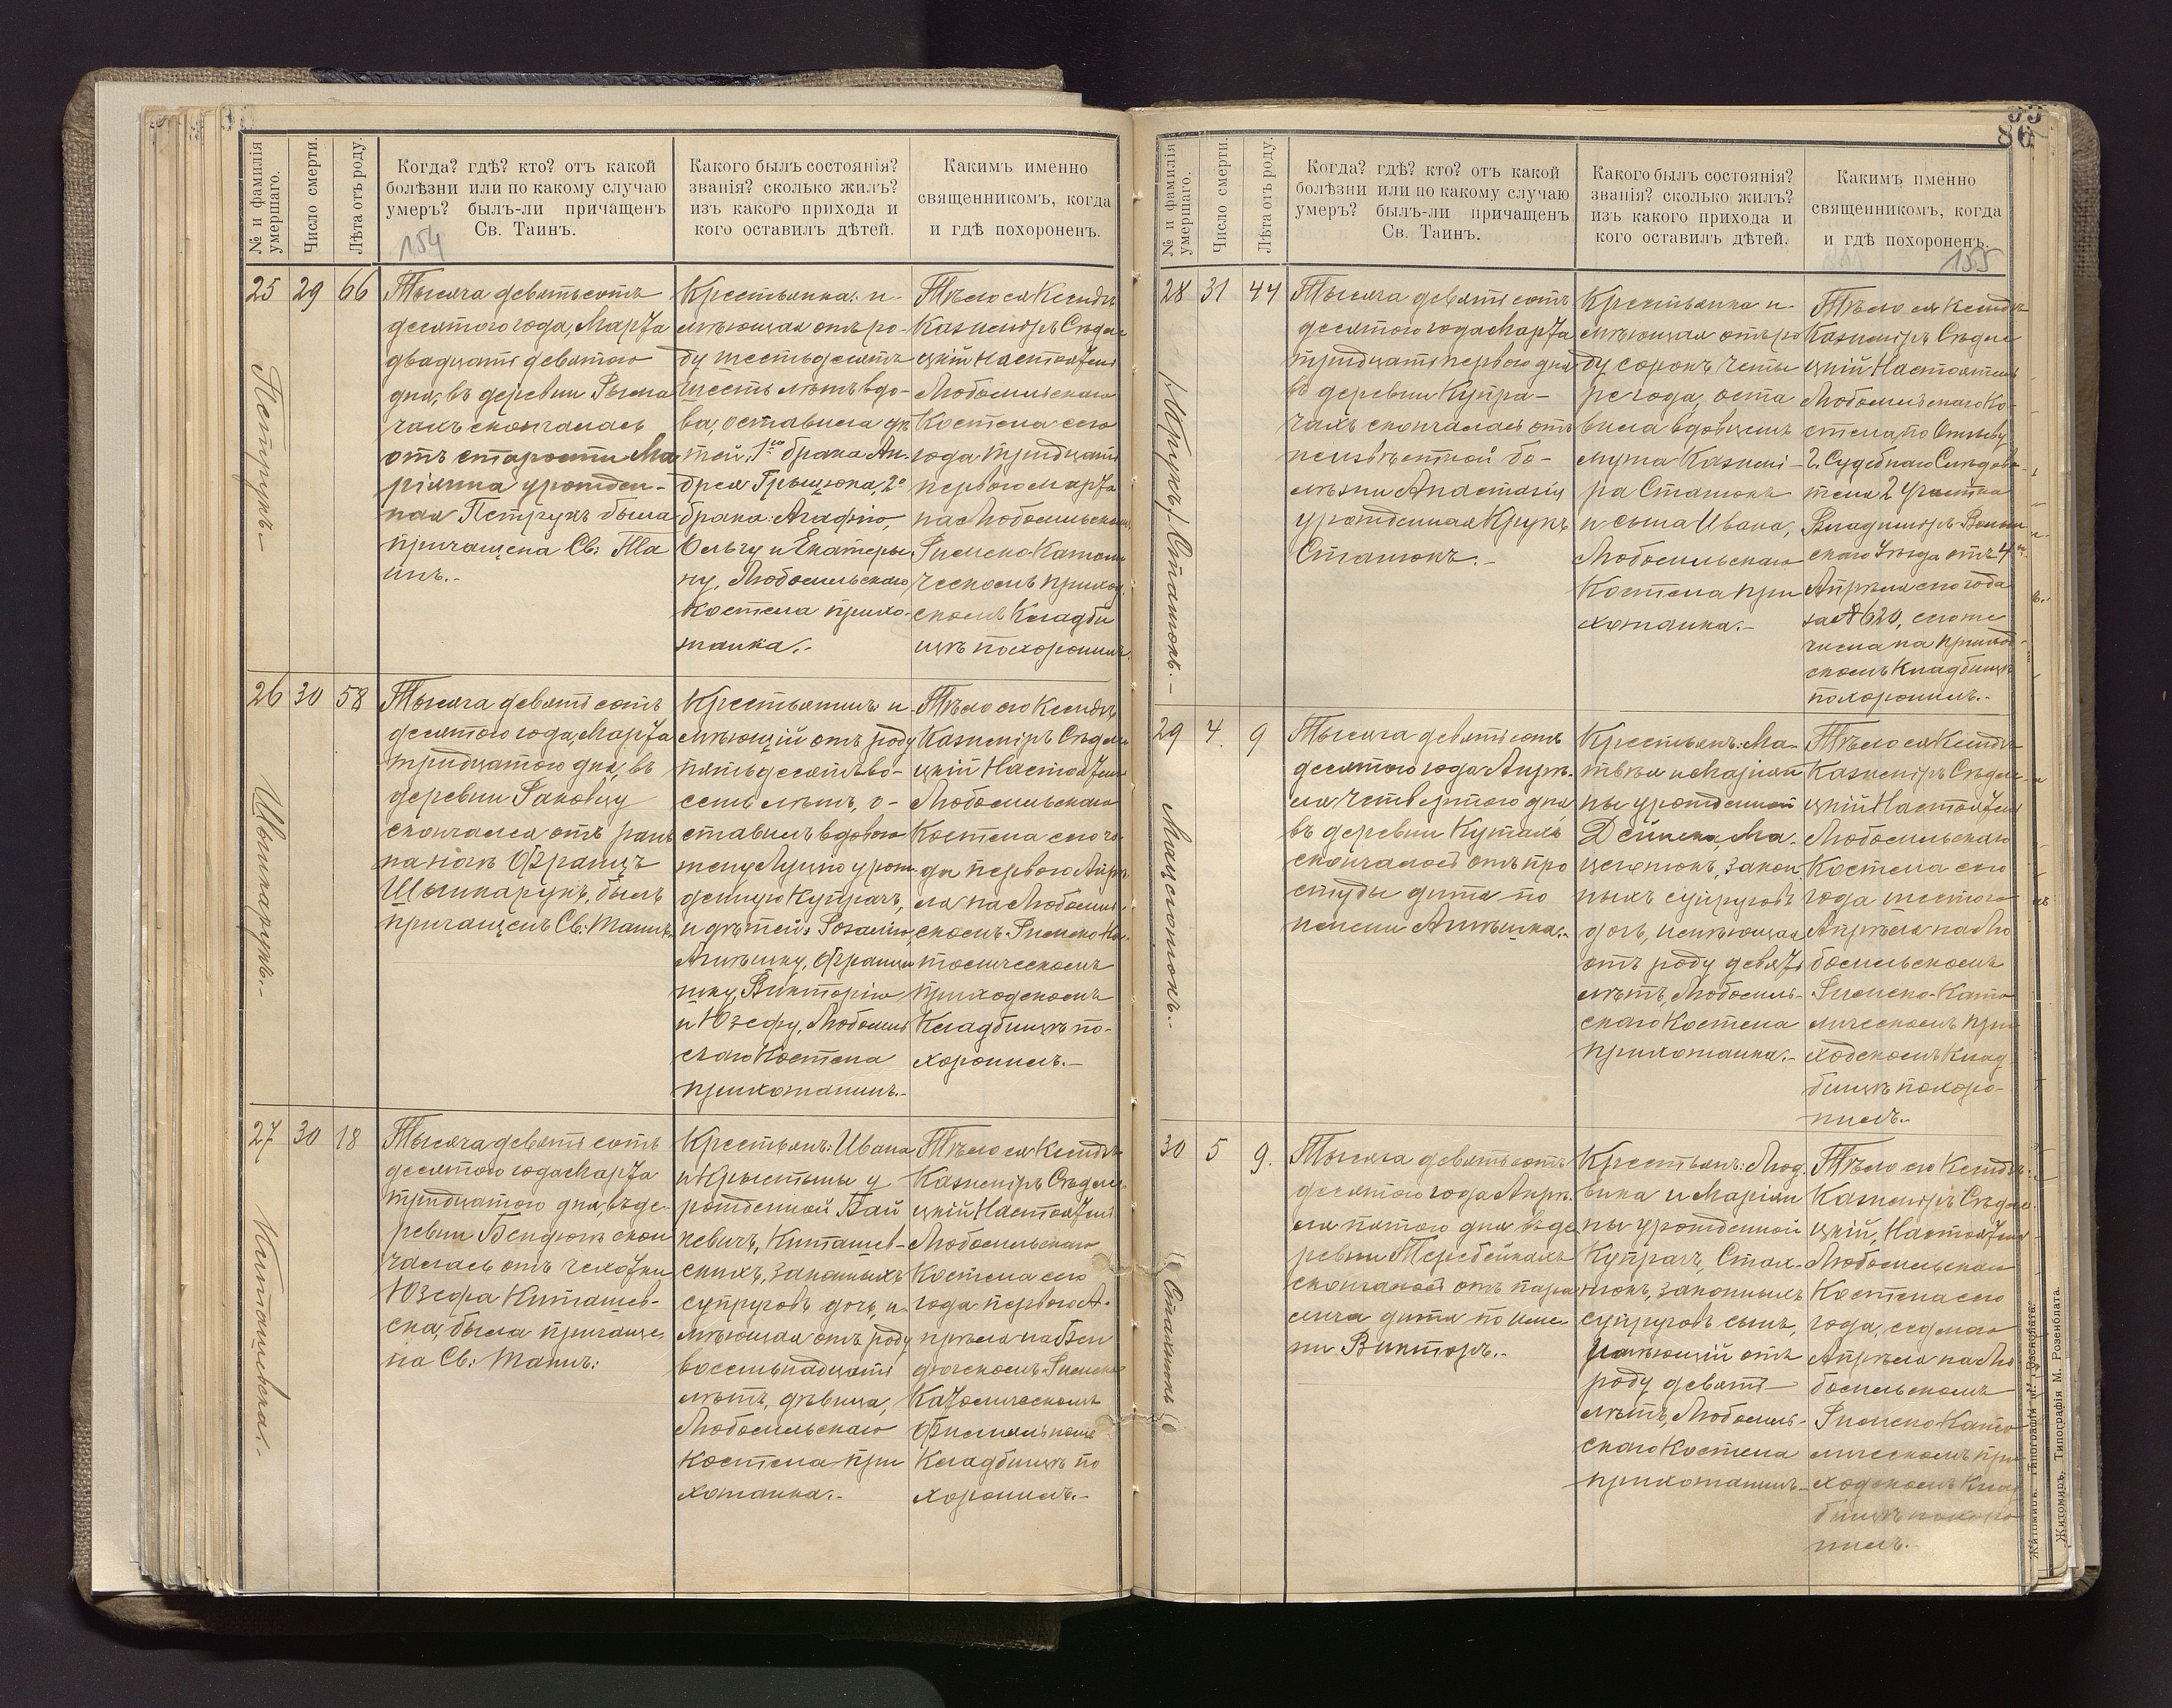 № и фамилія умершаго.
Число смерти.
Лѣта отъ роду.
Когда? гдѣ? кто? отъ какой
болѣзни или по какому случаю
умеръ? былъ-ли причащенъ
Св. Таинъ.
154
Какого былъ состоянія?
званія? сколько жилъ?
изъ какого прихода и
кого оставилъ дѣтей.
Какимъ именно
священникомъ, когда
и гдѣ похороненъ.
25 29 66
Петрукъ.-
Тысяча девятьсотъ
десятого года, Марта
двадцать девятого
дня, въ деревни Рыма
чахъ скончалась
отъ старости Ма
ріянна урожден-
ная Петрукъ была
причащена Св: Та
инъ.-
Крестьянка: и-
мѣющая отъ ро-
ду шестьдесятъ
шесть лѣтъ вдо-
ва, оставила дѣ
тей: 1го брака Ан-
дрея Грыцюка, 2о
брака: Агафію,
Ольгу и Екатеры
ну, Любомльскаго
Костела прихо-
жанка.-
Тѣло ея Ксендзъ
Казиміръ Сѣдле
цкій Настоятель
Любомльскаго
Костела сего
года тридцать
первого Марта
на Любомльском
Римско-Католи
ческомъ приход
скомъ Кладби
щѣ похоронилъ.
26 30 58
Шышкарукъ.-
Тысяча девятьсотъ
десятого года, Марта
тридцатого дня, въ
деревни Раковцу
скончался отъ ранъ
на ногѣ Францъ
Шышкарукъ, былъ
причащенъ Св: Таинъ.
Крестьянинъ и
мѣющій отъ роду
пятьдесятъ во-
семь лѣтъ, о-
ставилъ вдовою
жену Луцію урож
денную Купрачъ,
и дѣтей: Розалію,
Агнѣшку, Францы
шку, Викторію
и Юзефу, Любомль
скаго Костела
прихожанинъ.-
Тѣло его Ксендзъ
Казиміръ Сѣдле
цкій Настоятель
Любомльскаго
Костела сего го-
да первого Апрѣ
ля на Любомль-
скомъ Римско-Ка-
толическомъ
приходскомъ
Кладбищѣ по-
хоронилъ.-
27 30 18
Киташевская.-
Тысяча девятьсотъ
десятого года Марта
тридцатого дня, въ де-
ревни Бендюгѣ скон
чалась отъ чахотки
Юзефа Киташев-
ска, была причаще
на Св: Таинъ:
Крестьянъ: Ивана
и Крыстыны у
рожденной Вай
кевичъ, Киташев-
скихъ, законныхъ
супруговъ дочь, и-
мѣющая отъ роду
восемьнадцать
лѣтъ, дѣвица,
Любомльскаго
Костела при
хожанка.-
Тѣло ея Ксендзъ
Казиміръ Сѣдле-
цкій Настоятель
Любомльскаго
Костела сего
года первого А-
прѣля на Бен
дюгскомъ Римско
Католическомъ
Филіяльномъ
Кладбищѣ по
хоронилъ.-
86
№ и фамилія умершаго.
Число смерти.
Лѣта отъ роду.
Когда? гдѣ? кто? отъ какой
болѣзни или по какому случаю
умеръ? былъ-ли причащенъ
Св. Таинъ.
Какого былъ состоянія?
званія? сколько жилъ?
изъ какого прихода и
кого оставилъ дѣтей.
Какимъ именно
священникомъ, когда
и гдѣ похороненъ.
155
28 31 44
/Крукъ/ Сташюкъ.-
Тысяча девятьсотъ
десятого года Марта
тридцать первого дня
въ деревни Купра-
чахъ скончалась отъ
неизвѣстной бо-
лѣзни Анастасія
урожденная Крукъ
Сташюкъ.-
Крестьянка и-
мѣющая отъ ро
ду сорокъ четы
ре года, оста
вила вдовцемъ
мужа Казимі-
ра Сташюкъ
и сына Ивана,
Любомльскаго
Костела при
хожанка.-
Тѣло ея Ксендзъ
Казиміръ Сѣдле
цкій Настоятель
Любомльскаго Ко-
стела, по Отзыву
Г. Судебнаго Слѣдова-
теля 2 Участка
Владиміръ-Волын
скаго Уѣзда отъ 4
Апрѣля сего года
за № 620, сего же
числа на приход-
скомъ Кладбищѣ
похоронилъ.-
29 4 9
Тысяча девятьсотъ
десятого года Апрѣ-
ля четвертого дня
въ деревни Кутахъ
скончалась отъ про
студы дитя по
имени Агнѣшка.-
Крестьянъ: Ма-
твѣя и Маріян
ны урожденной
законныхъ супруговъ
дочь, имѣющая
отъ роду девять
лѣтъ, Любомль-
скаго Костела
прихожанка.-
Тѣло ея Ксендзъ
Казиміръ Сѣдле-
цкій Настоятель
Любомльскаго
Костела сего
года шестого
Апрѣля на Лю
бомльскомъ
Римско-Като
лическомъ при
ходскомъ Клад
бищѣ похоро-
нилъ.-
30 5 9.
Стахнюкъ
Тысяча девятьсотъ
десятого года Апрѣ-
ля пятого дня въ де
ревни Теребейкахъ
скончалось отъ пара
лича дитя по име
ни Викторъ.-
Крестьянъ: Люд
вика и Маріян
ны урожденной
Купрачъ, Стах-
нюкъ, законныхъ
супруговъ сынъ,
имѣющій отъ
роду девять
лѣтъ, Любомль-
скаго Костела
прихожанинъ.-
Тѣло его Ксендзъ
Казиміръ Сѣдле-
цкій, Настоятель
Любомльскаго
Костела сего
года, седьмого
Апрѣля на Лю-
бомльскомъ
Римско Като
лическомъ при
ходскомъ Клад
бищѣ похоро
нилъ.-
Житомиръ. Типографія М. Розенблата.
Житомиръ. Типографія М. Розенблата.